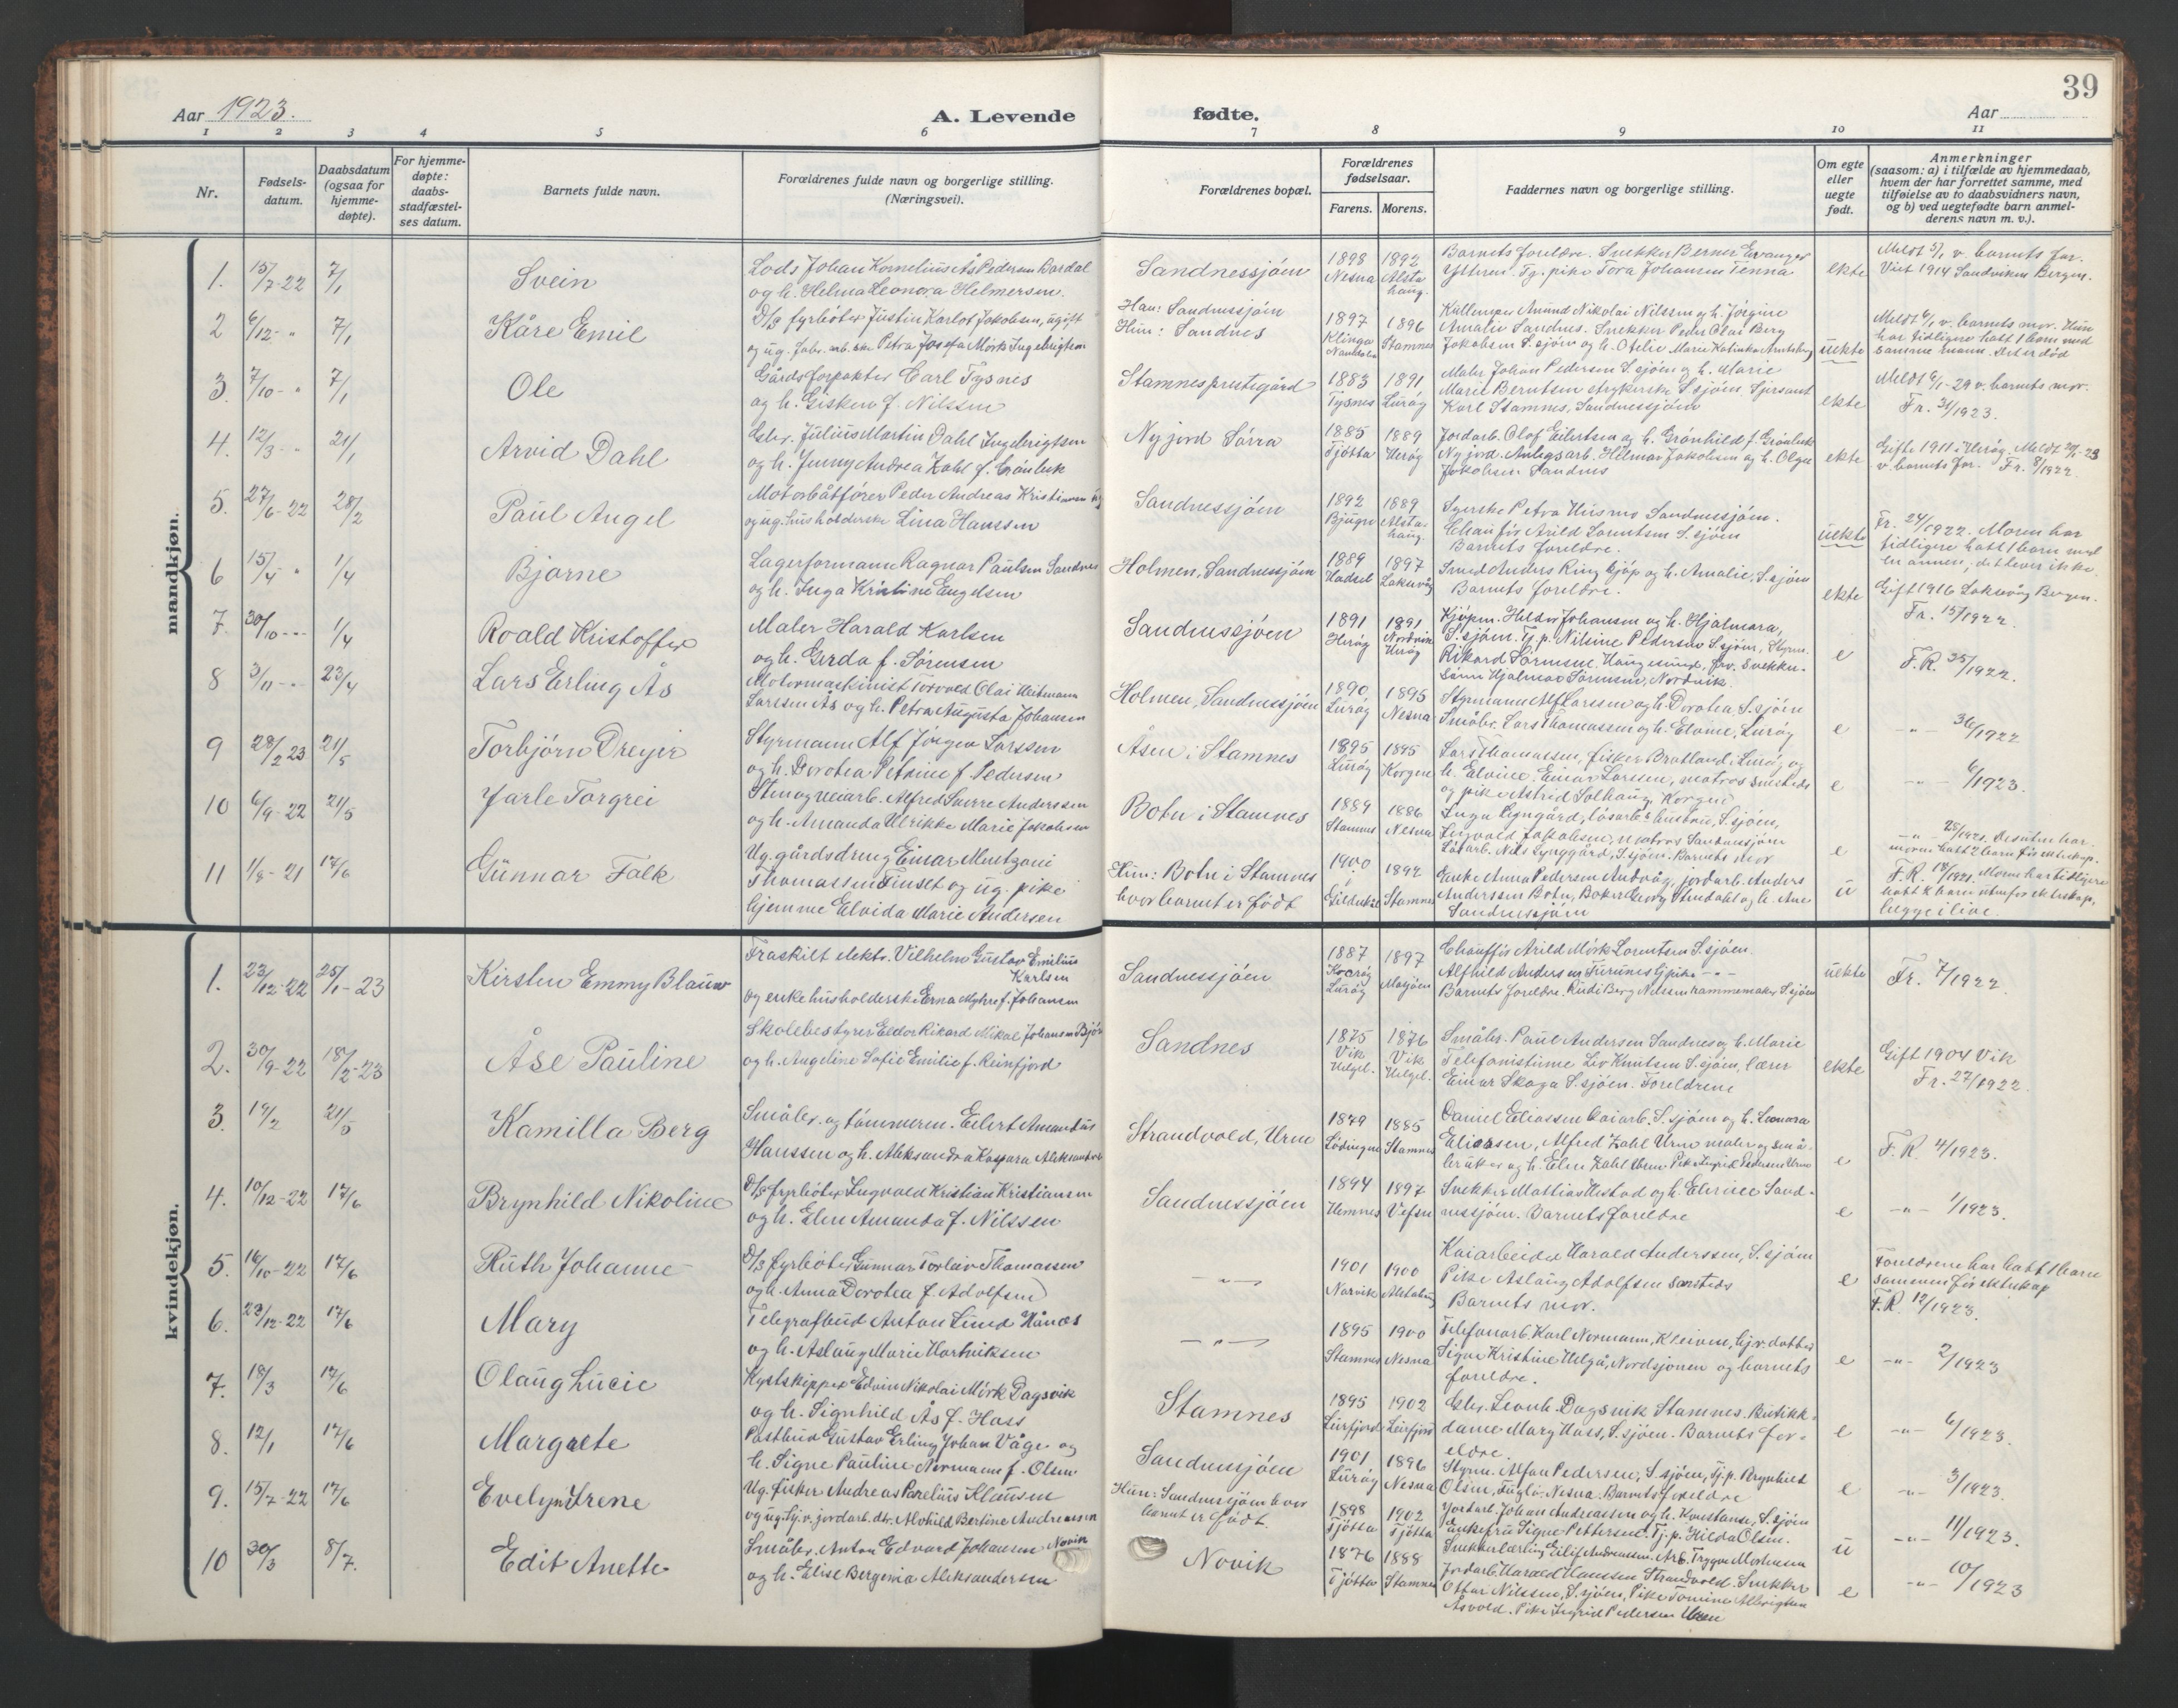 39
Aar 1923. A. Levende fødte. Aar
1 2 3 4 5 6 7 8 9 10 11
Nr.
Fødsels-
datum.
Daabsdatum
(ogsaa for
hjemme-
døpte).
For hjemme-
døpte:
daabs-
stadfæstel-
ses datum.
Barnets fulde navn.
Forældrenes fulde navn og borgerlige stilling.
(Næringsvei).
Forældrenes bopæl.
Forældrenes
fødselsaar.
Farens. Morens.
Faddernes navn og borgerlige stilling.
Om egte
eller
uegte
født.
Anmerkninger
(saasom: a) i tilfælde av hjemmedaab,
hvem der har forrettet samme, med
tilføielse av to daabsvidners navn,
og b) ved uegtefødte barn anmel-
derens navn m. v.).
mandkjøn.
1. 15/7-22 7/1 Svein
Lods Johan Kornelius Ås Pedersen Bardal
og h. Helma Leonora Helmersen.
Sandnessjøen
1898 Nesna 1892 Alstahaug.
Barnets foreldre. Snekker Berner Evanger
Ytteren. Tj. pike Tora Johansen Tenna
ekte
Meldt 5/1 v. barnets far.
Viet 1914 Sandviken Bergen.
2 6/12 - " 7/1 Kåre Emil
D/s fyrbøter Justin Karlot Jakobsen, ugift
og ug. fabr. arb. ske Petra Josefa Mørk Ingebrigtsen
Han: Sandnessjøen
Hun: Sandnes
1897 Klinga Namdalen 1896 Stamnes
Kullemper Amund Nikolai Nilssen og h. Jørgine
Amalie Sandnes. Snekker Peder Olai Berg
Jakobsen S.sjøen og h. Otelie Marie Katinka Arntsberg
uekte
Meldt 6/1 v. barnets mor. Hun
har tidligere hatt 1 barn med
samme mann. Det er død
3. 7/10 - " 7/1 Ole
Gårdsforpakter Carl Tysnes
og h. Gisken f. Nilssen
Stamnes prestegård
1883 Tysnes 1891 Lurøy
Maler Johan Pedersen S.sjøen og h. Marie
Marie Berntsen strykerske S.sjøen, Sjersant
Karl Stamnes, Sandnessjøen
ekte
Meldt 6/1-23 v. barnets mor.
Fr. 31/1923.
4. 12/3 - " 21/1 Arvid Dahl
Gbr. Julius Martin Dahl Ingebrigtsen
og h. Jenny Andrea Zahl f. Grønbek
Nyjord Sørra
1885 Tjøtta 1889 Herøy
Jordarb. Olof Eilertsen og h. Grønhild f. Grønbek
Nyjord. Anlegsarb. Hilmar Jakobsen og h. Olga
Jakobsen Sandnes
ekte
Gifte 1911 i Herøy. Meldt 20/1-23
v. barnets far. Fr. 8/1922.
5. 27/6-22 28/2 Paul Angel
Motorbåtfører Peder Andreas Kristiansen ug
og ug. husholderske Lina Hanssen
Sandnessjøen
1892 Bjugn 1889 Alstahaug.
Syerske Petra Husmo Sandnessjøen.
Chauffør Arild Lorentsen S.sjøen
Barnets foreldre.
uekte
Fr. 24/1922. Moren har
tidligere hatt 1 barn med
en annen, det lever ikke.
6 15/4 " 1/4 Bjarne
Lagerformann Ragnar Paulsen Sandnes
og h. Inga Kristine Engelsen
Holmen, Sandnessjøen
1889 Hadsel 1897 Laksevåg
Smed Anders Ringkjøp og h. Amalie, S.sjøen
Barnets foreldre.
ekte
Gift 1916 Laksevåg Bergen.
Fr. 15/1922.
7. 30/10 -- 1/4 Roald Kristoffer
Maler Harald Karlsen
og h. Gerda f. Sørensen
Sandnessjøen
1891 Herøy 1891 Nordvik Herøy
Kjøpm. Hilder Johansen og h. Hjalmara,
S.sjøen. Tj. p. Nilsine Pedersen S.sjøen, Styrm.
Rikard Sørensen Haugesund, frv. Snekker-
Sønn Hjalmar Sørensen, Nordvik.
e
F.R. 35/1922.
8 3/11 -- 23/4 Lars Erling Ås
Motormaskinist Torvald Olai Heitmann
Larssen Ås og h. Petra Augusta Johansen
Holmen, Sandnessjøen
1890 Lurøy 1895 Nesna
Styrmann Alf Larssen og h. Dorotea, S.sjøen
Småbr. Lars Thomassen og h. Elvine, Lurøy
e
-"- 36/1922
9 28/2 23 21/5 Torbjørn Dreyer
Styrmann Alf Jørgen Larssen
og h. Dorotea Petrine f. Pedersen
Åsen i Stamnes
1895 Lurøy 1895 Korgen
Lars Thomassen, fisker Bratland i Lurøy og
h. Elvine. Einar Larssen, matros smsteds
og pike Astrid Solhaug, Korgen
e
-"- 6/1923.
10 6/9-22 21/5 Jarle Torgrei
Sten og veiarb. Alfred Sverre Anderssen
og h. Amanda Ulrikke Marie Jakobsen
Botn i Stamnes
1889 Stamnes 1886 Nesna
Inga Lyngård, løsarb.s hustru, S.sjøen,
Ingvald Jakobsen, matros Sandnessjøen
Løsarb. Nils Lynggård, S.sjøen. Barnets mor
e
-"- 28/1921. Desuten har
moren hatt 2 barn før ekteskap.
11 1/8-21 17/6 Gunnar Falk
Ug. gårdsdreng Einar Mentzoni
Thomassen Finset og ug. pike
hjemme Elvida Marie Andersen
Hun: Botn i Stamnes
hvor barnet er født
1900 Gildeskål 1892 Stamnes
Enke Anna Pedersen Andvåg, jordarb. Anders
Anderssen Botn, Baker Georg Amdahl og h. Ane
Sandnessjøen
u
F.R. 18/1921. Moren har tidligere
hatt 2 barn utenfor ekteskap,
begge i live.
kvindekjøn.
1. 23/12-22 25/1-23 Kirsten Emmy Blauw
Fraskilt elektr. Vilhelm Gustav Emilius
Karlsen
og enke husholderske Erna Myhre f. Johansen
Sandnessjøen
1887 Lurøy 1897 Mosjøen
Chauffør Arild Mørk Lorentsen S.sjøen.
Alfhild Andersen Furunes tj pike -"-
Barnets foreldre. Rudi Berg Nilssen rammemaker S.sjøen
uekte
Fr. 7/1922.
2. 30/9-22 18/2-23 Åse Pauline
Skolebestyrer Eldor Rikard Mikal Johansen Bjør
og h. Angeline Sofie Emilie f. Reinfjord
Sandnes
1875 Vik Helgel. 1876 Vik Helgel.
Småbr. Paul Andersen Sandnes og h. Marie
Telefonistinne Liv Knutsen S.sjøen, lærer
Einar Skaga S.sjøen. Foreldrene
ekte
Gift 1904 Vik
Fr. 27/1922.
3. 19/2 21/5 Kamilla Berg
Småbr. og tømmerm. Eilert Amandus
Hanssen og h. Aleksandra Kaspara Aleksandersen
Strandvold, Urne
1879 Lødingen 1885 Stamnes
Daniel Eliassen kaiarb. S.sjøen og h. Leonora
Eliassen, Alfred Zahl Urne maler og små-
bruker og h. Elen Zahl Urne Pike Ingrid Pedersen Urne
e
F.R. 4/1923.
4. 10/12-22 17/6 Brynhild Nikoline
D/s fyrbøter Ingvald Kristian Kristiansen
og h. Elen Amanda f. Nilssen
Sandnessjøen
1894 Hemnes 1897 Vefsn
Snekker Mattias Hustad og h. Elerine Sand-
nessjøen. Barnets foreldre
e
-"- 1/1923.
5. 16/10-22 17/6 Ruth Johanne
D/s fyrbøter Gunnar Torleiv Thomassen
og h. Anna Dorotea f. Adolfsen
-"-
1901 Narvik 1900 Alstahaug
Kaiarbeider Harald Anderssen, S.sjøen
Pike Aslaug Adolfsen samsteds
Barnets mor.
e
Foreldrene har hatt 1 barn
sammen før ekteskap
F.R. 12/1923.
6. 23/12-22 17/6 Mary
Telegrafbud Anton Lund Hånes
og h. Aslaug Marie Hartviksen
-"-
1895 Stamnes 1900 Nesna
Telefonarb. Karl Normann, Kleiven, hjv. datter
Signe Kristine Helgå, Nordsjonen og barnets
foreldre.
e
-"- 2/1923
7. 18/3 17/6 Olaug Lucie
Kystskipper Edvin Nikolai Mørk Dagsvik
og h. Signhild Ås f. Hass
Stamnes
1895 Leirfjord 1902 Leirfjord
Gbr. Leonh. Dagsvik Stamnes. Butikk-
dame Mary Hass, S.sjøen. Barnets for-
eldre.
e
-"- 6/1923.
8. 12/1 17/6 Margrete
Postbud Gustav Erling Johan Våge og
h. Signe Pauline Normann f. Olsen
Sandnessjøen
1901 Lurøy 1896 Nesna
Styrm. Alfon Pedersen, S.sjøen, Tj. p. Brynhild
Olsen, Fuglø. Nesna. Barnets foreldre
e
-"- 3/1923.
9. 15/7-22 17/6 Evelyn Irene
Ug. fisker Andreas Parelius Klausen
og ug. tj. v. jordarb. dtr. Alvhild Bertine Andreassen
Hun: Sandnessjøen hvor
barnet er født.
1898 Tjøtta 1902 Tjøtta
Jordarb. Johan Andreassen og h. Konstanse, S.sjøen
Enkefru Signe Pettersen. Tj. p. Hilda Olsen.
Snekkerlærling Eilif Andreassen. Arb. Trygve Mortensen
u
-"- 11/1923.
10 30/3 8/7. Edit Anette
Småbr. Anton Edvard Johansen Novik
og h. Elise Bergenia Aleksandersen
Novik
1876 Tjøtta 1888 Stamnes
Jordarb. Harald Hanssen Strandvold. Snekker
Ottar Nilssen, S.sjøen, Pike Tomine Albrigtsen
Åsvold. Pike Ingrid Pedersen Urne
e
-"- 10/1923